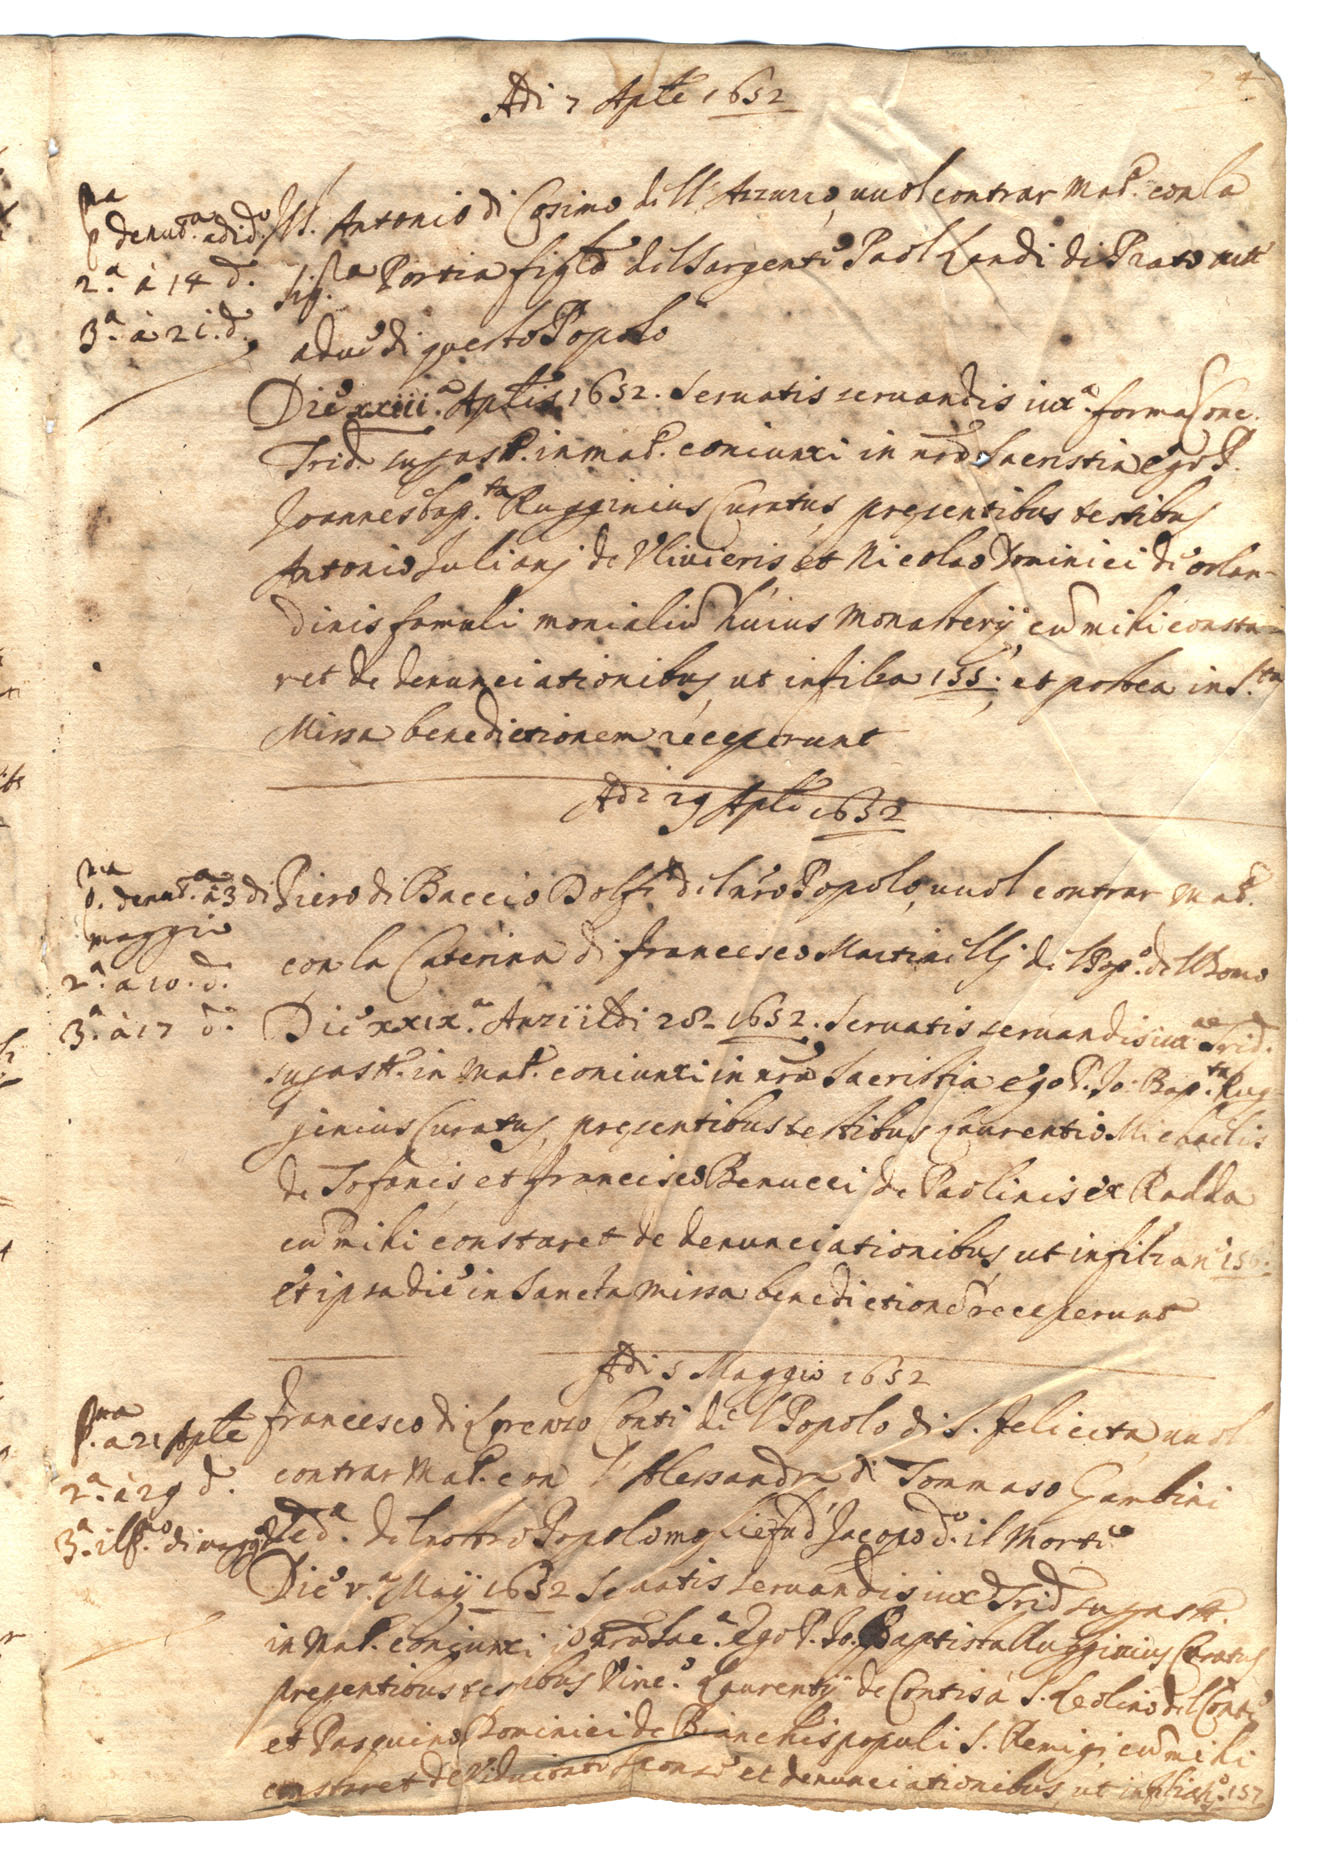 74
Adi 7 Aprile 1652
p.ma denu.a adi d.o
2.a à 14 d.o
3.a à 21. d.o
Antonio di Cosimo dell'Azzurro, vuol contrar Mat.o con la
Sig.ra Portia figla del Sargente Paol Landi di Prato
di questo Popolo
Die xxiii.a Aplis 1652. Servatis servandis iux.a forma Conc.
Trid. in mat. coniunxi in nra Sacristia ego P.
Joannes bap.ta Rugginius Curatus, presentibus testibus
Antonio Juliani de Ulivieris et Nicolao Dominici de Orlan-
dinis famuli monialiu huius Monasterij, cu mihi consta-
ret de denunciationibus, ut in filza 155. et postea in S.ta
Missa benedictionem receperunt
Adi 29 Aple 1652
p.ma denu.a à 3 di
maggio
2.a à 10. d.o
3.a à 17 d.o
Piero di Baccio Dolfi del nro Popolo, vuol contrar Mat.o
con la Caterina di Francesco Martinelli del Pop.o del
Die xxix.a Anzi il di 28 - 1652. Servatis servandis iux. Trid.
in Mat. coniunxi in nra Sacristia ego P. Jo: Bap.ta Rug-
ginius Curatus, presentibus testibus Laurentio Michaelis
de Tofanis et Francisco Benucci de Paolinis ex Radda
cu mihi constaret de denunciationibus, ut in filza n.o 156.
et ipsa die in Sancta missa benedictione receperunt
Adi 5 Maggio 1652
p.ma à 21 Aple
2.a à 29 d.o
3.a il p.mo di maggio
Francesco di Lorenzo Conti del Popolo di S. Felicita, vuol
contrar Mat. con l'Alessandra di Tommaso Gambini
Ved.a del nostro Popolo moglie fu d'Jacopo d.o il
Die v.a Maij 1652 Servatis servandis iux Trid
in Mat. coniunxi in nra Sac.a Ego P. Jo. Baptista Rugginius Curatus
presentibus testibus Vinc.o Laurentij de Contis à S. Leolino del
et Pasquino Dominici de Bianchis populi S. Remigi cu mihi
constaret de et denunciationibus, ut in filza n.o 157